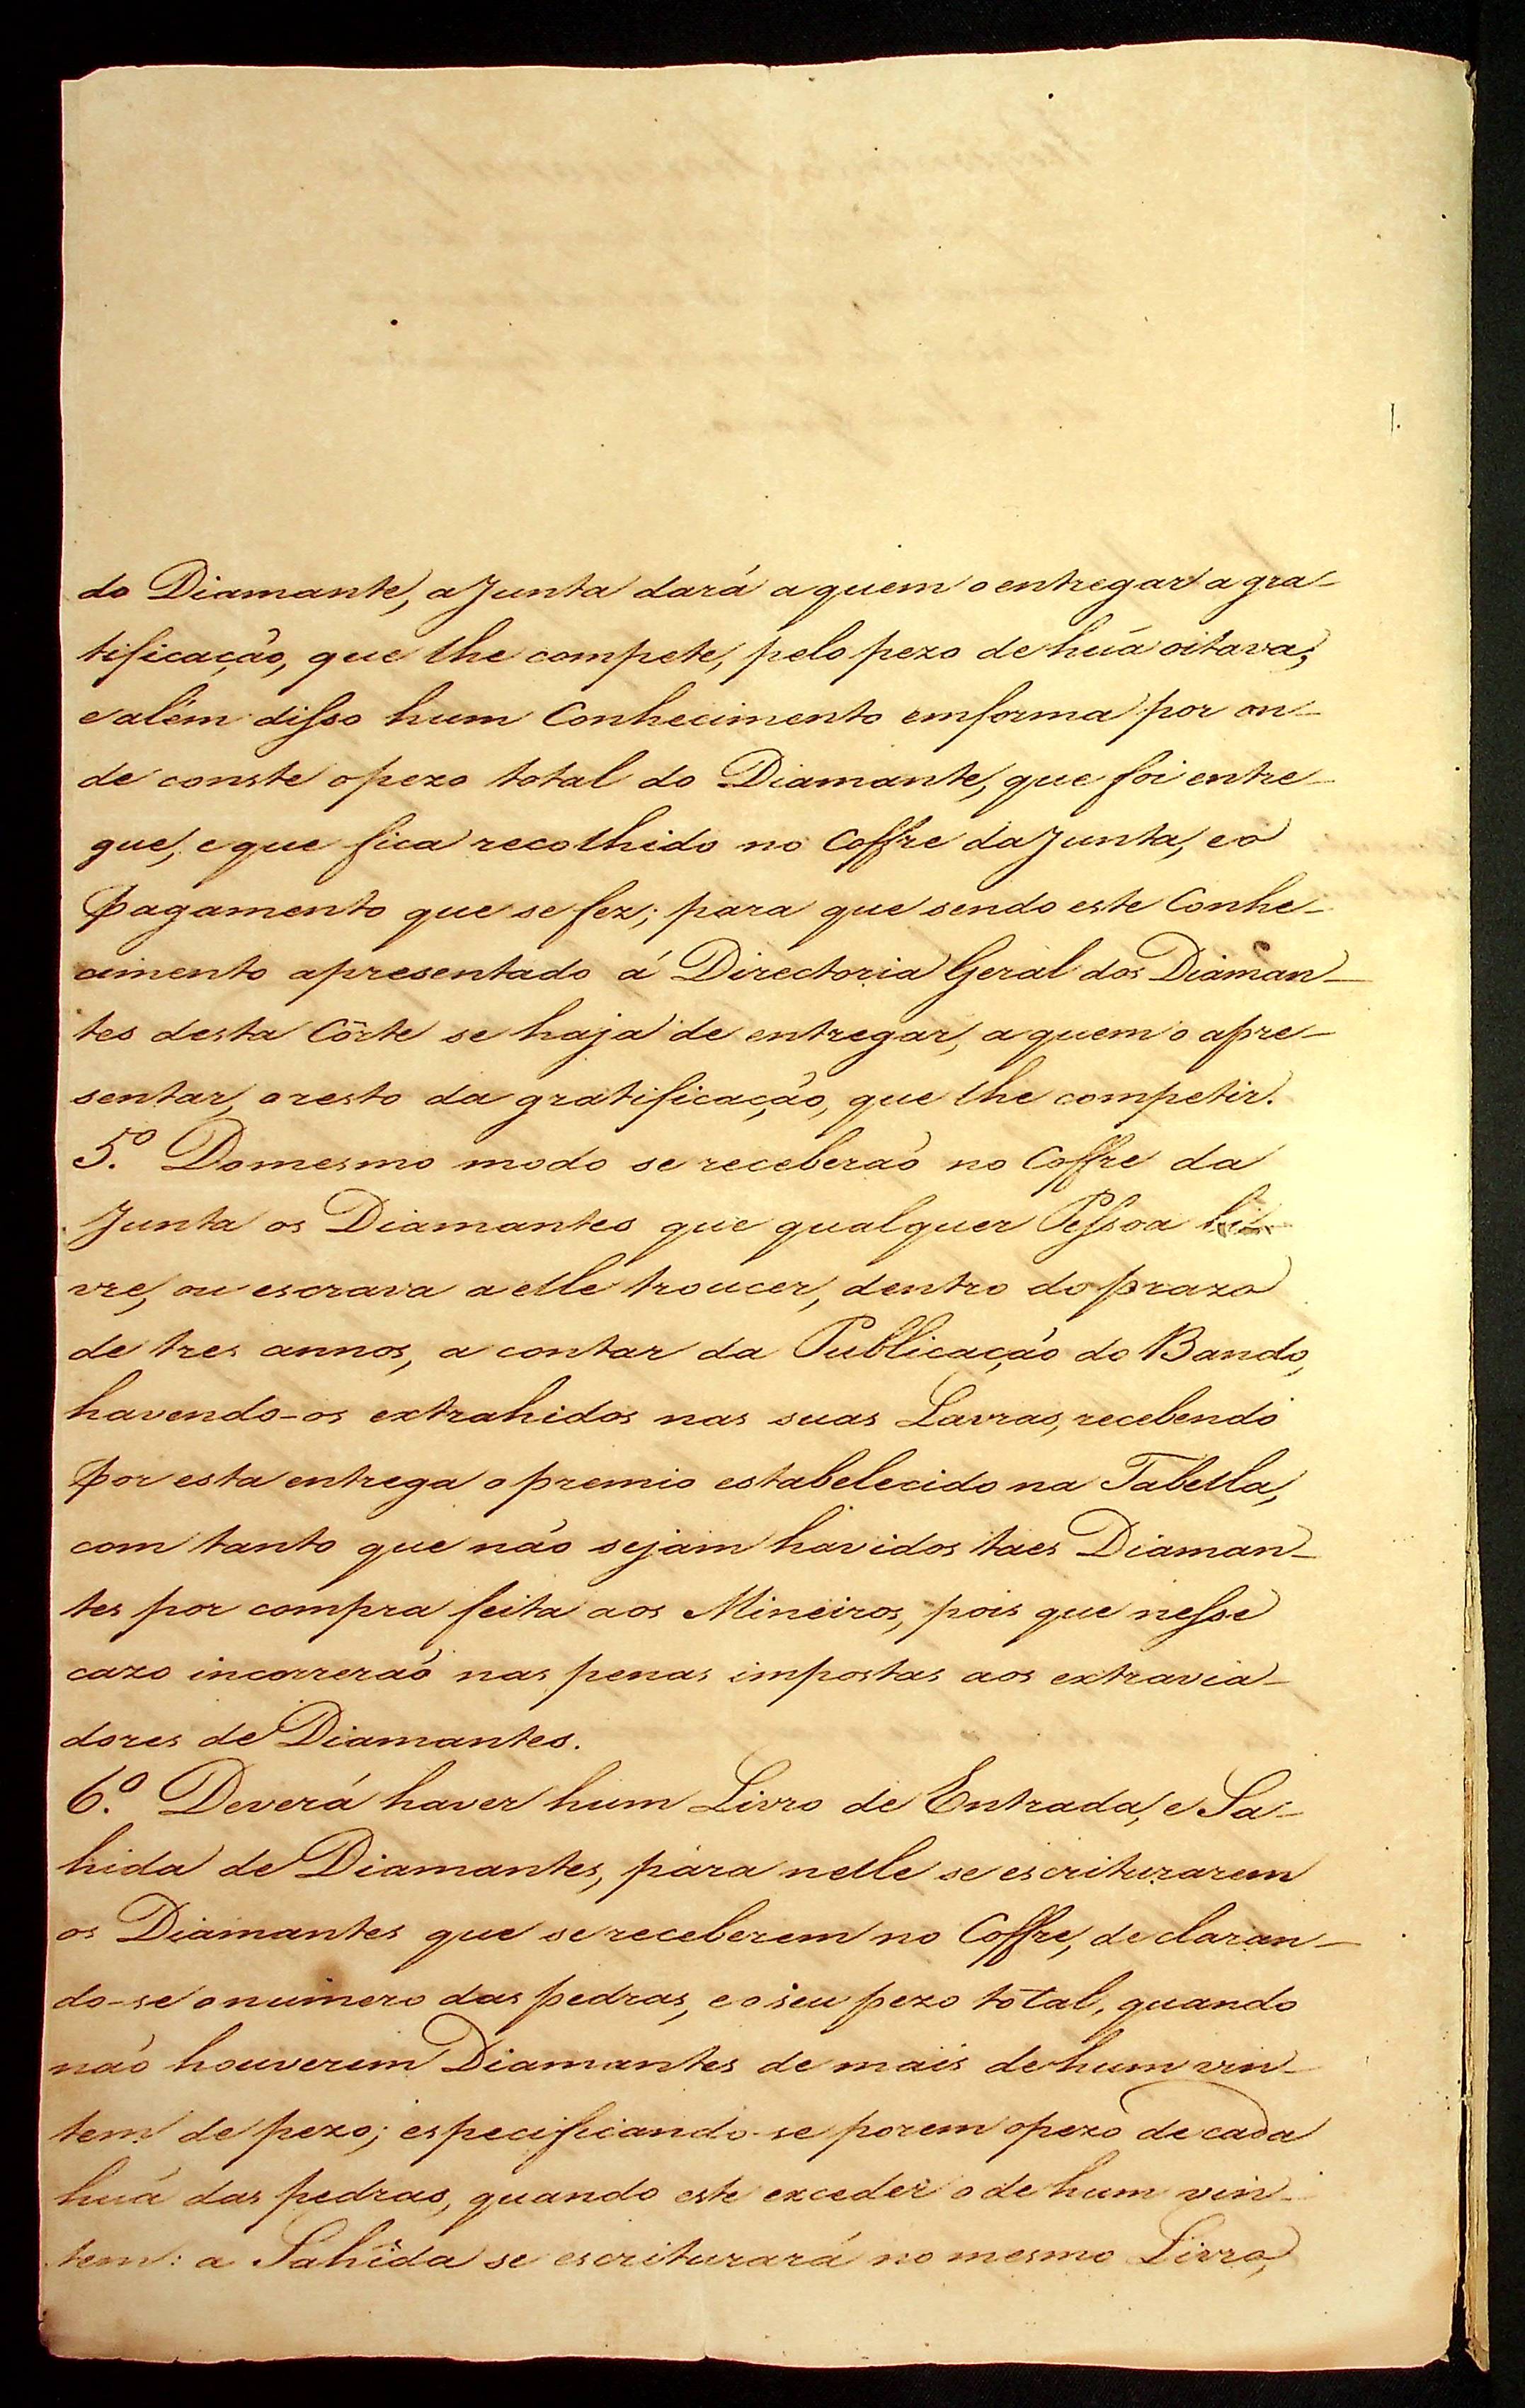 do Diamante, a Junta dará a quem o entregar a gra-
tificação, que lhe compete, pelo pezo de huã oitava,
e além disso hum Conhecimento em forma por on-
de conste o pezo total do Diamante, que foi entre-
gue, e que fica recolhido no Coffre da Junta, e o
pagamento que se fez; para que sendo este Conhe-
cimento apresentado á Directoria Geral dos Diaman-
tes desta Côrte se haja de entregar, a quem o apre-
sentar, o resto da gratificação, que lhe competir.
5.º Do mesmo modo se receberão no Coffre da
Junta os Diamantes que qualquer Pessoa li-
vre, ou escrava a elle troucer, dentro do prazo
de tres annos, a contar da Publicação do Bando,
havendo-os extrahidos nas suas Lavras, recebendo
por esta entrega o premio estabelecido na Tabella,
com tanto que não sejam havidos taes Diaman-
tes por compra feita aos Mineiros, pois que nesse
cazo incorrerão nas penas impostas aos extravia-
dores de Diamantes.
6.º Deverá haver hum Livro de Entrada, e Sa-
hida de Diamantes, para nelle se escriturarem
os Diamantes que se receberem no Coffre, declaran-
do-se o numero das pedras, e o seu pezo total, quando
não houverem Diamantes de mais de hum vin-
tem de pezo; especificando-se porem o pezo de cada
huã das pedras, quando este exceder o de hum vin-
tem: a Sahida se escriturará no mesmo Livro,